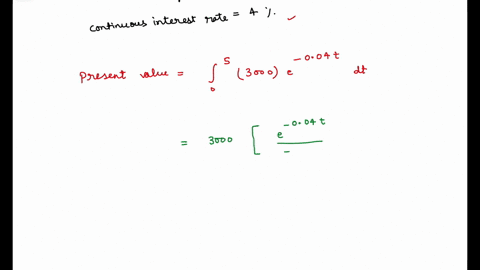 continuous interest rate = 4 %.
Present value = ∫₀⁵ (3000) e^{-0.04t} dt
= 3000 [ e^{-0.04t} / -